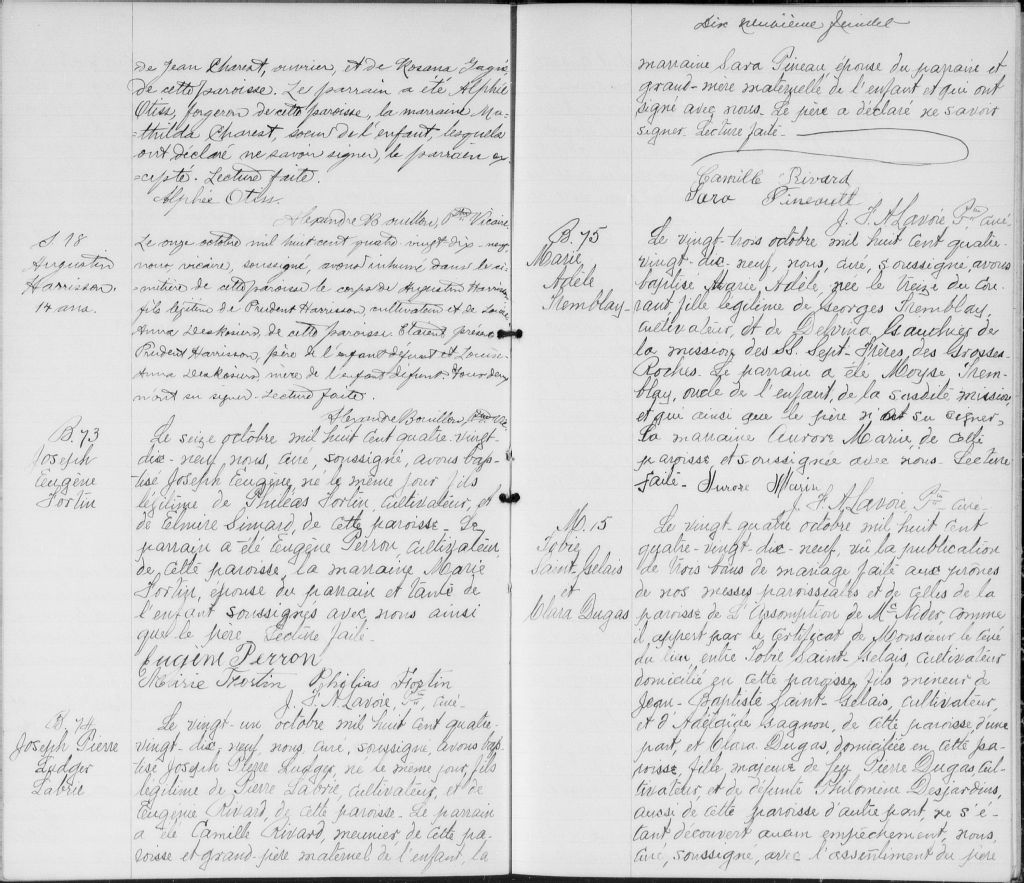 de Jean Charest, ouvrier, et de Rosana Gagné,
de cette paroisse. Le parrain a été Alphée
Otis, forgeron de cette paroisse, la marraine Ma-
-thilda Charest, soeur de l'enfant, lesquels
ont déclaré ne savoir signer, le parrain ex-
-cepté. Lecture faite.
Alphée Otis.
Alexandre Bouillon, Ptre Vicaire.
S. 18
Augustin
Harrisson.
14 ans.
Le onze octobre mil huit cent quatre-vingt dix-neuf
nous, vicaire, soussigné, avons inhumé dans le ci-
-metière de cette paroisse le corps de Augustin Harrisson
fils légitime de Prudent Harrisson, cultivateur et de Louise
Anna de cette paroisse. Etaient présents
Prudent Harrisson, père de l'enfant défunt et Louise-
Anna mère de l'enfant défunt. Tous deux
n'ont su signer. Lecture faite.
Alexandre Bouillon, Ptre Vic.
B. 73
Joseph
Eugène
Fortin
Le seize octobre mil huit cent quatre-vingt-
dix-neuf, nous, curé, soussigné, avons bap-
tisé Joseph Eugène, né le même jour, fils
légitime de Philéas Fortin, cultivateur, et
de Elmire Simard, de cette paroisse. Le
parrain a été Eugène Perron, cultivateur,
de cette paroisse, la marraine Marie
Fortin, épouse du parrain et tante de
l'enfant soussignés avec nous ainsi
que le père. Lecture faite.
Eugène Perron
Marie Fortin Philias Fortin
J. F. A. Lavoie, Ptre, curé-
B. 74
Joseph Pierre
Ludger
Labrie
Le vingt-un octobre mil huit cent quatre-
vingt-dix-neuf, nous, curé, soussigné, avons bap-
tisé Joseph Pierre Ludger, né le même jour, fils
légitime de Pierre Labrie, cultivateur, et de
Eugénie Rivard, de cette paroisse. Le parrain
a été Camille Rivard, meunier, de cette pa-
roisse et grand-père maternel de l'enfant, la
Dix neuvième feuillet
marraine Sara Pineau épouse du parrain et
grand-mère maternelle de l'enfant et qui ont
signé avec nous. Le père a déclaré ne savoir
signer. Lecture faite-
Camille Rivard
Sara Pineault
J. F. A. Lavoie Ptre curé
B. 75
Marie
Adèle
Tremblay-
Le vingt-trois octobre mil huit cent quatre-
vingt-dix-neuf, nous, curé, soussigné, avons
baptisé Marie, Adèle, née le treize du cou-
rant, fille légitime de Georges Tremblay,
cultivateur, et de Delvina Gauthier de
la mission des SS. Sept-Frères, des Grosses-
Roches. Le parrain a été Moyse Trem-
blay, oncle de l'enfant, de la susdite mission,
et qui ainsi que le père n'ont su signer,
la marraine Aurore Marin, de cette
paroisse, et soussignée avec nous. Lecture
faite- Aurore Marin
J. F. A. Lavoie, Ptre curé-
M. 15
Tobie
Saint-Gelais
et
Clara Dugas
Le vingt-quatre octobre mil huit cent
quatre-vingt-dix-neuf, vû la publication
de trois bans de mariage faite aux prônes
de nos messes paroissiales et de celles de la
paroisse de L'Assomption de McNider, comme
il appert par le certificat de Monsieur le Curé
du lieu, entre Tobie Saint-Gelais, cultivateur
domicilié en cette paroisse, fils mineur de
Jean-Baptiste Saint-Gelais, cultivateur,
et d'Adélaïde Gagnon, de cette paroisse, d'une
part, et Clara Dugas, domiciliée en cette pa-
roisse, fille majeure de feu Pierre Dugas, cul-
tivateur, et de défunte Philomène Desjardins,
aussi de cette paroisse d'autre part, ne s'é-
tant découvert aucun empêchement, nous,
curé, soussigné, avec l'assentiment du père